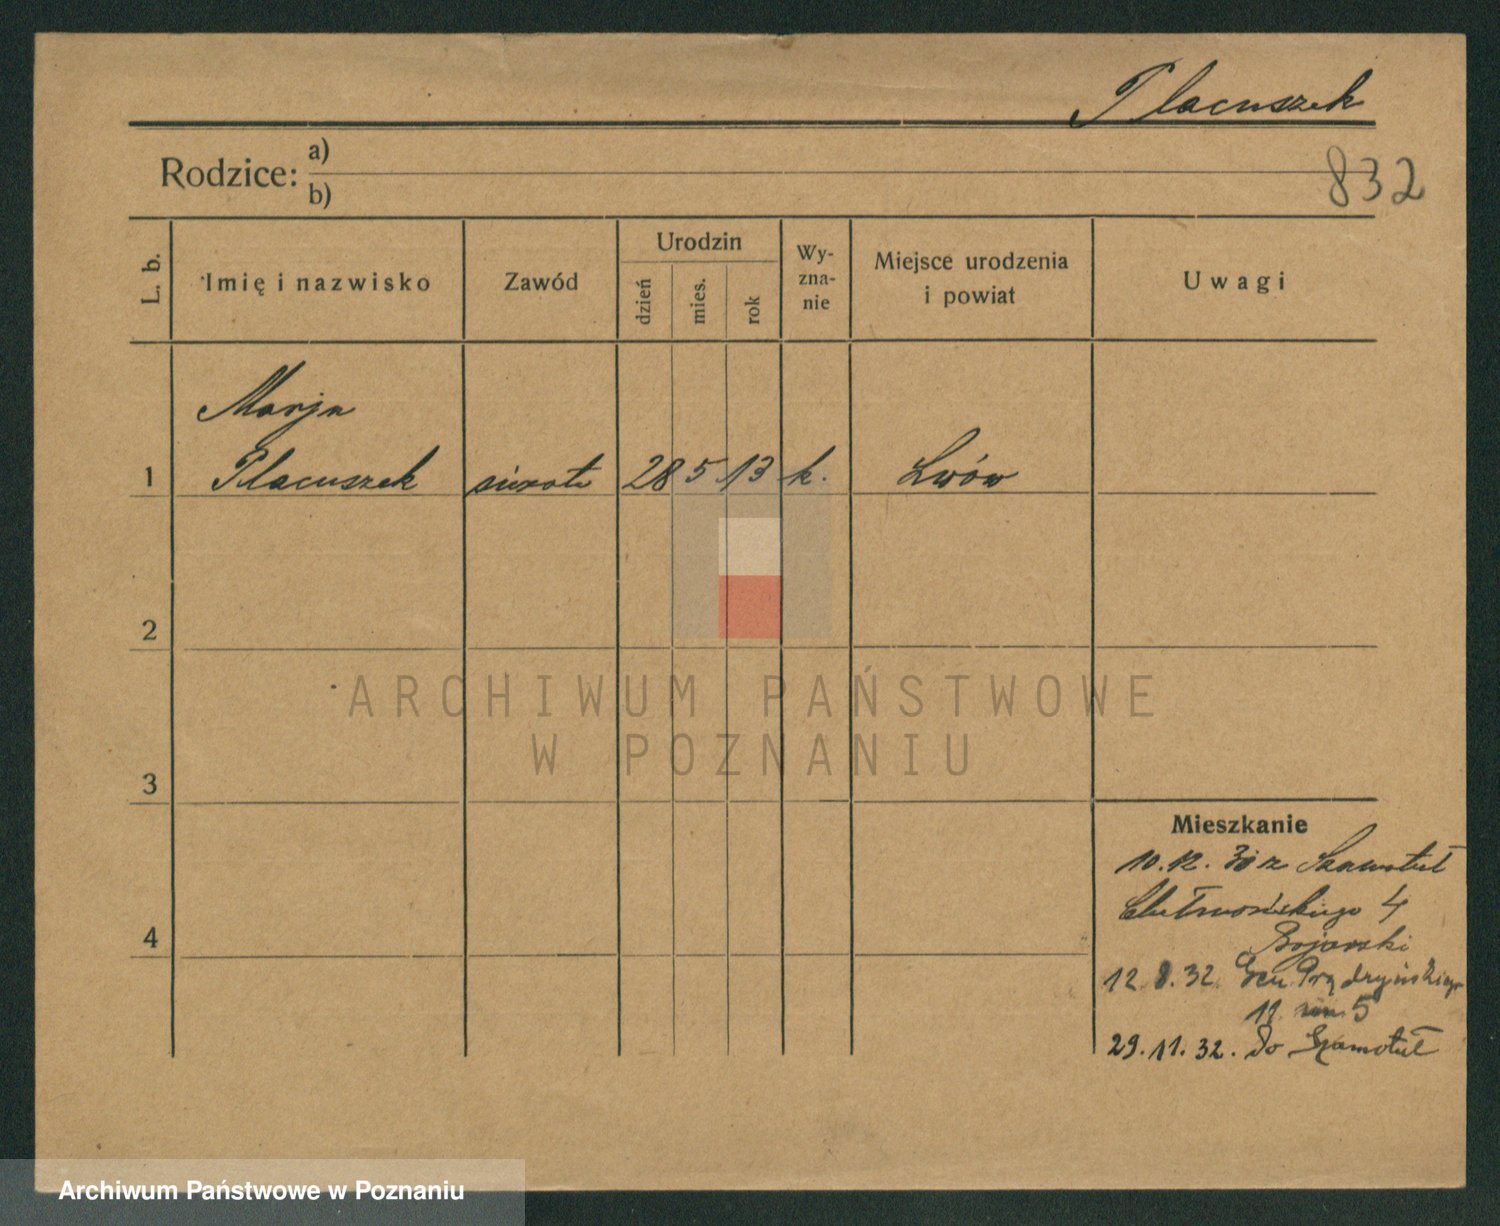 Placuszek
Rodzice:
a)
b)
832
L. b.
Imię i nazwisko
Zawód
Urodzin
dzień
mies.
rok
Wy-
zna-
nie
Miejsce urodzenia
i powiat
Uwagi
Marja
1 Placuszek sierota 28 5 13 k. Lwów
2
ARCHIWUM PAŃSTWOWE
W POZNANIU
3
Mieszkanie
10.12. 30 z Szamotuł
Chełmońskiego 4
4
Bojarski
12.8.32. Gen. Prądzyńskiego
19. 5
29.11.32. do Szamotuł
Archiwum Państwowe w Poznaniu